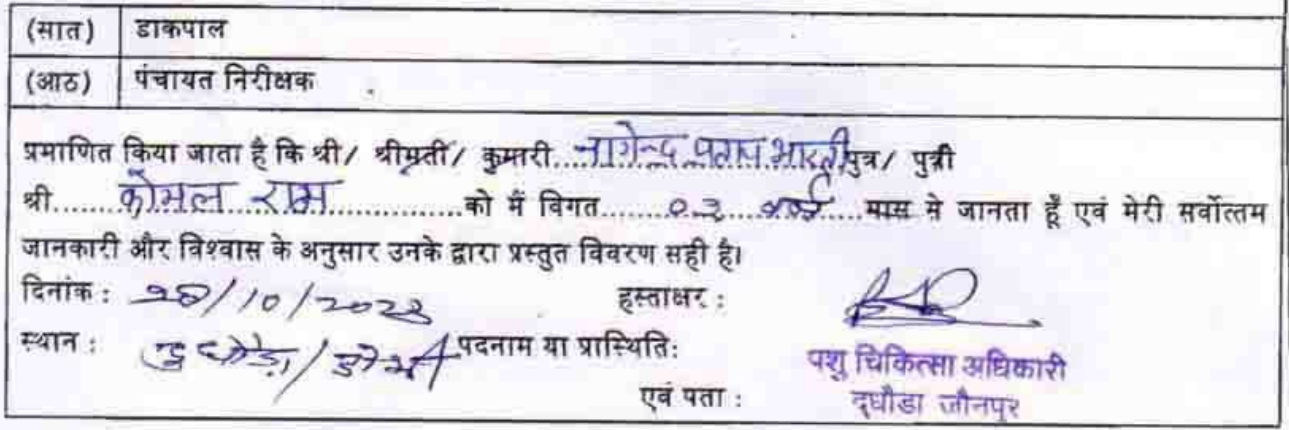 (सात) डाकपाल
(आठ) पंचायत निरीक्षक
प्रमाणित किया जाता है कि श्री/ श्रीमती/ कुमारी...नागेन्द्र प्रताप भारती पुत्र/ पुत्री
श्री........कोमल राम................को मैं विगत........03 वर्ष....मास से जानता हूँ एवं मेरी सर्वोत्तम
जानकारी और विश्वास के अनुसार उनके द्वारा प्रस्तुत विवरण सही है।
दिनांक : 28/10/2023 हस्ताक्षर :
स्थान : पदनाम या प्रास्थिति:
पशु चिकित्सा अधिकारी
एवं पता : दुधौडा जौनपुर